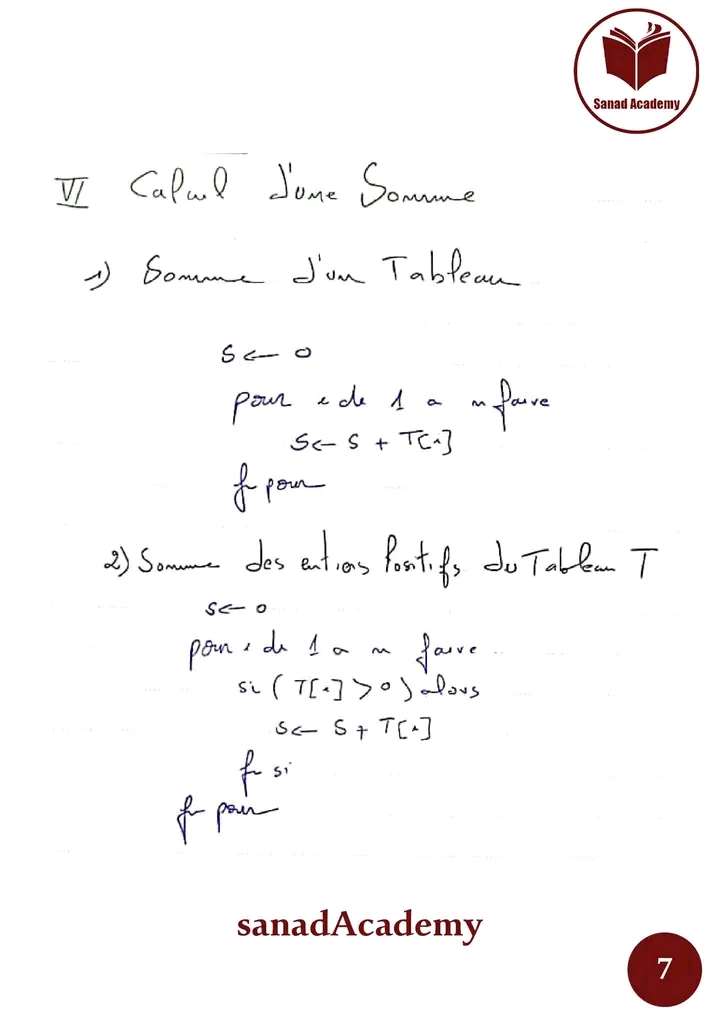 Sanad Academy
VI Calcul d'une Somme
1) Somme d'un Tableau
S ← 0
pour i de 1 a n faire
S ← S + T[i]
fin pour
2) Somme des entiers Positifs du Tableau T
S ← 0
pour i de 1 a n faire
si (T[i] > 0) alors
S ← S + T[i]
fin si
fin pour
sanadAcademy
7